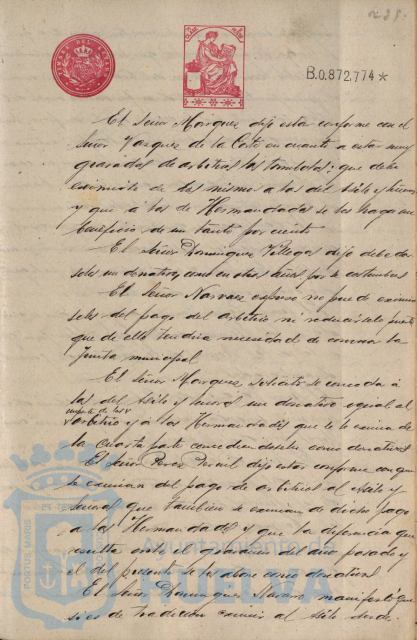 B.0.872,774 *
El Señor Marquez dijo estar conforme con el
Señor Vazquez de la Corte en cuanto a estar muy
gravadas de arbitrios las tombolas; que debe
eximirse de los mismos a las del Asilo y
y que á las de Hermandades se les haga en
beneficio de un tanto por ciento
El Señor Dominguez Villegas dijo debe dar
seles un donativo como en otros años por la costumbre
El Señor Narvaez expuso no puede eximir
seles del pago del arbitrio ni reducirsele puesto
que de ello tendria necesidad de conocer la
Junta municipal
El Señor Marquez solicita se conceda á
las del Asilo y un donativo igual al
importe de los
arbitrio y á las Hermandades que se le exima de
la cuarta parte concediendoseles como donativo
El Señor Perez dijo estar conforme con que
se eximan del pago de arbitrios al Asilo y
que tambien se eximan de dicho pago
a las Hermandades y que la diferencia que
resulta entre el gravamen del año pasado y
el del presente se les abone como donativo
El Señor Dominguez manifestó que
si es de tradicion eximir al Asilo
PORTUS MARIS
Ayuntamiento de
HUELVA